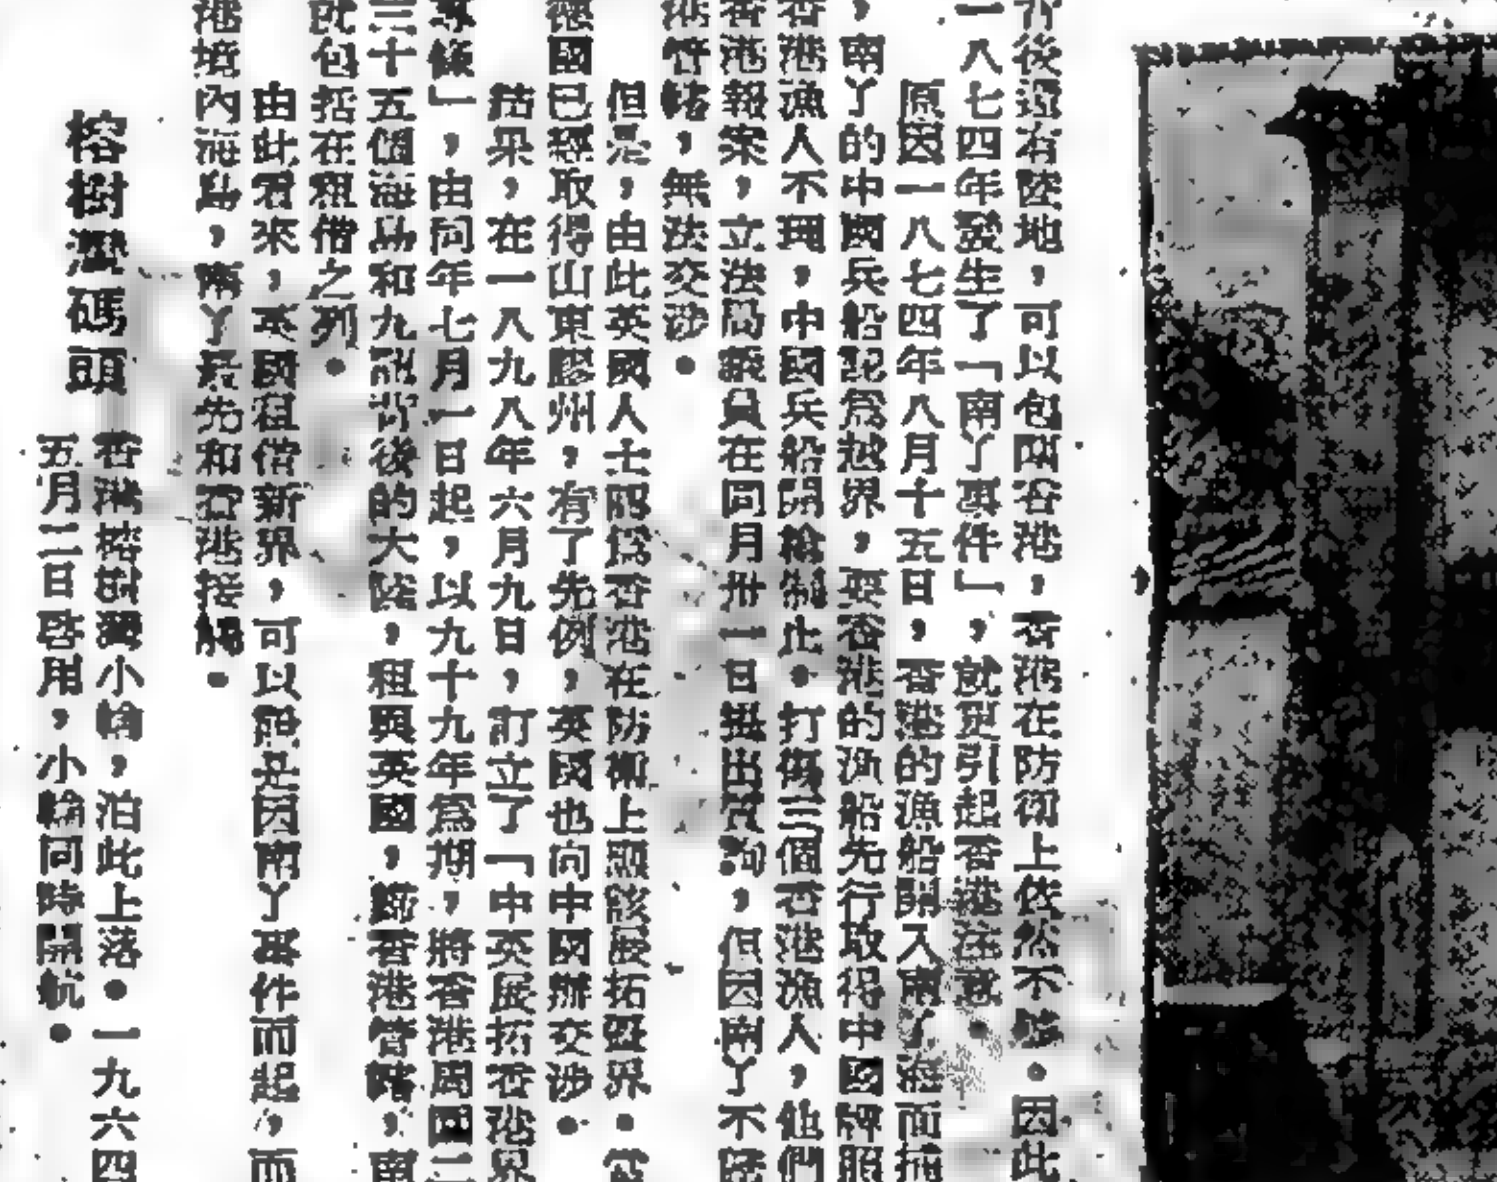 背後還有陸地，可以包圍香港，香港在防衛上依然不夠。因此
一八七四年發生了「南丫事件」，就更引起香港注意
原因一八七四年八月十五日，香港的漁船開入南丫海面捕
，南丫的中國兵船認為越界，要香港的漁船先行取得中國牌照
香港漁人不理，中國兵船開槍制止。打傷三個香港漁人，他們
香港報案，立法局議員在同月卅一日提出質詢，但因南丫不
港管轄，無法交涉。
但是，由此英國人士認為香港在防衛上應該展拓界。
德國已經取得山東膠州，有了先例，英國也向中國辦交涉。
結果，在一八九八年六月九日，訂立了「中英展拓香港界
專條」，由同年七月一日起，以九十九年為期，將香港周圍二
三十五個海島和九龍背後的大陸，租與英國，歸香港管轄，南
就包括在租借之列。
由此看來，英國租借新界，可以說是因南丫事件而起，而
港境內海島，南丫最先和香港接觸。
榕樹灣碼頭
香港榕樹灣小輪，泊此上落。一九六四
五月二日啓用，小輪同時開航。